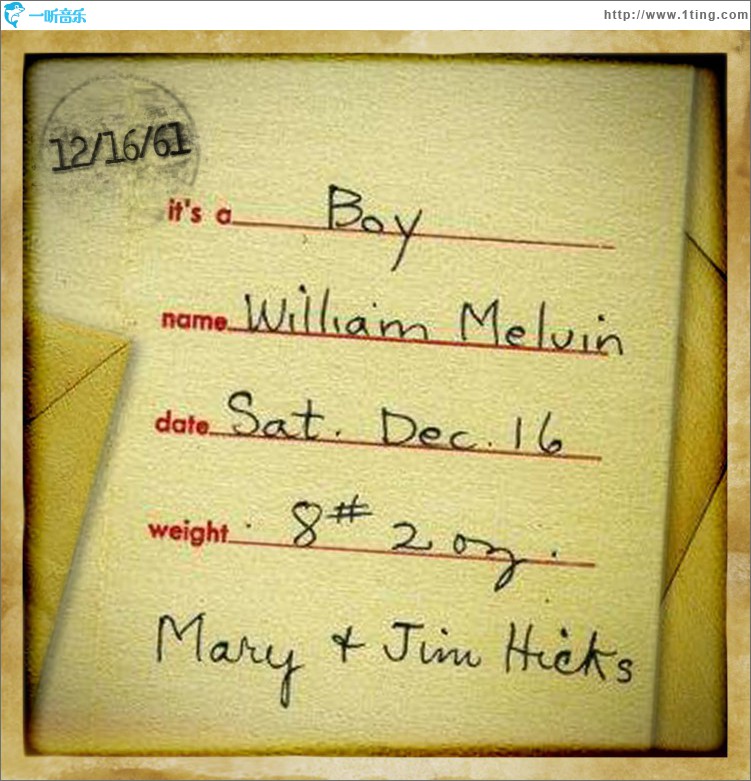 一听音乐 http://www.1ting.com
12/16/61
it's a Boy
name William Melvin
date Sat. Dec. 16
weight 8# 2 oz.
Mary & Jim Hicks